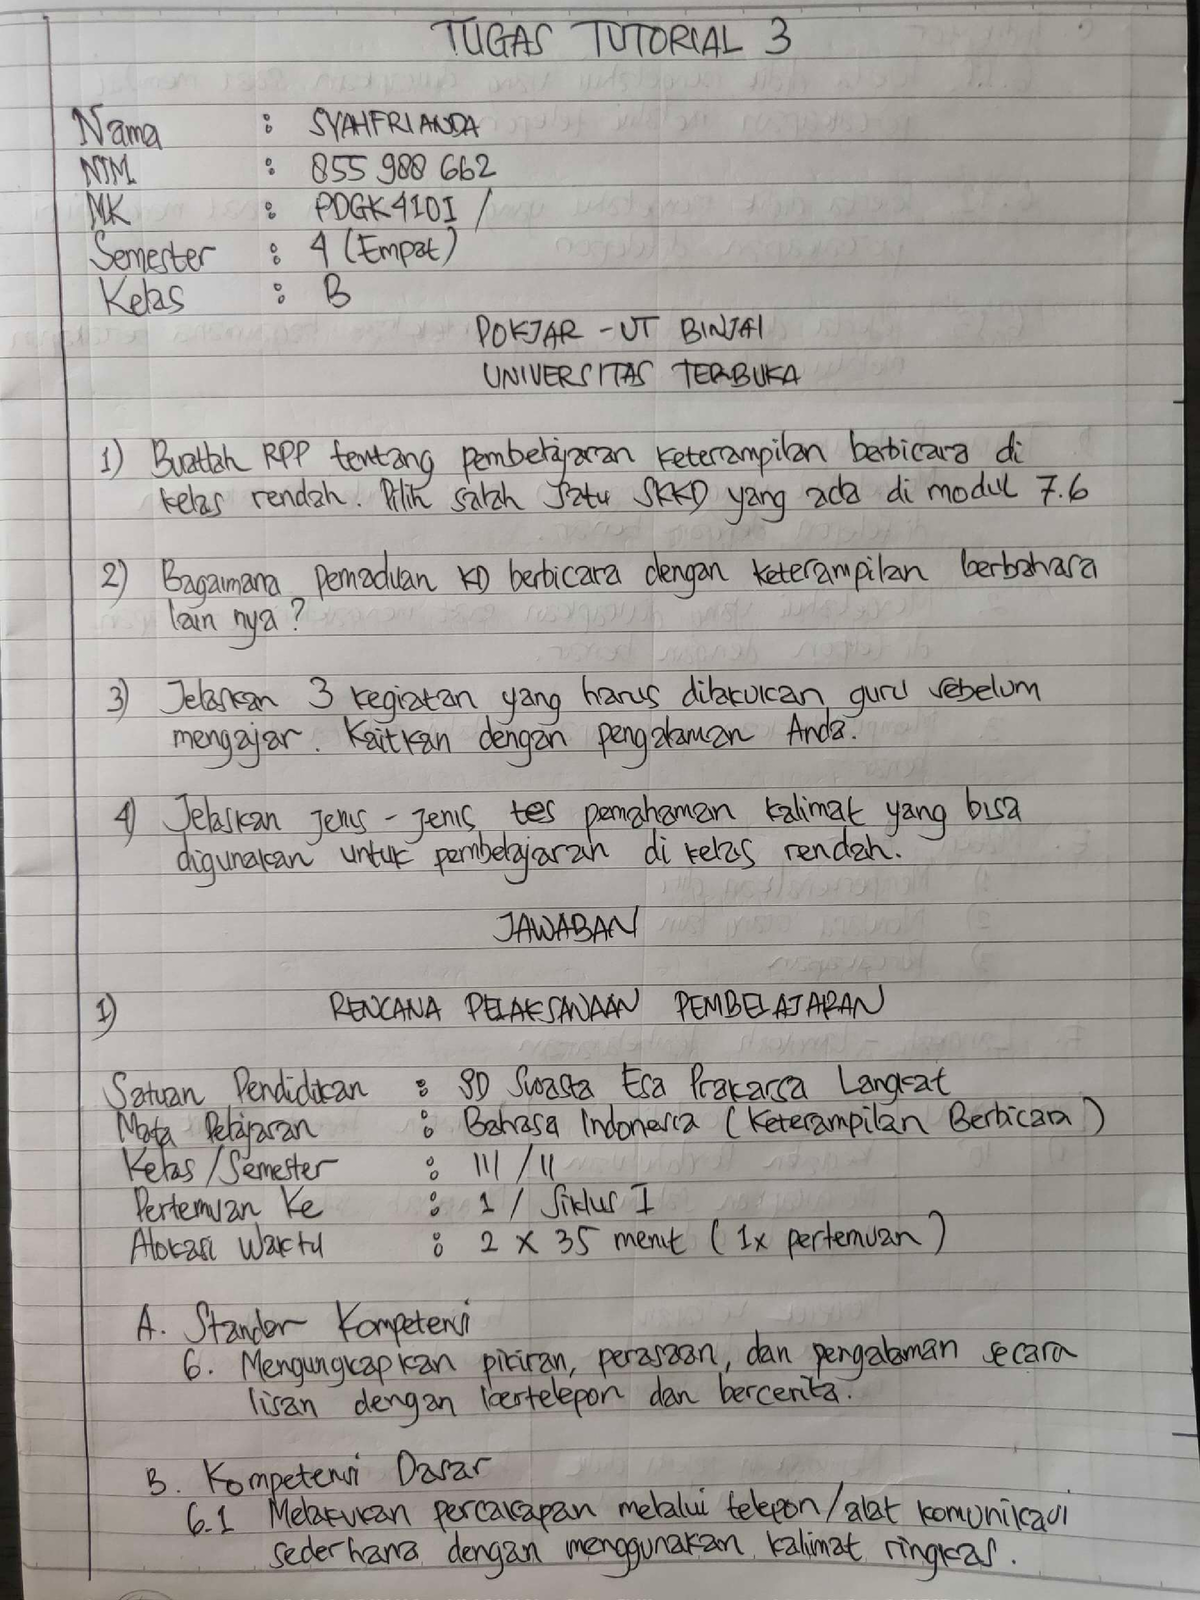 TUGAS TUTORIAL 3
Nama : SYAHFRIANDA
NIM : 855 988 662
MK : PDGK4101 /
Semester : 4 (Empat)
Kelas : B
POKJAR - UT BINJAI
UNIVERSITAS TERBUKA
1) Buatlah RPP tentang pembelajaran keterampilan berbicara di
kelas rendah. Pilih salah satu SKKD yang ada di modul 7.6
2) Bagaimana pemaduan KD berbicara dengan keterampilan berbahasa
lain nya?
3) Jelaskan 3 kegiatan yang harus dilakukan guru sebelum
mengajar. Kaitkan dengan pengalaman Anda.
4) Jelaskan jenis - jenis tes pemahaman kalimat yang bisa
digunakan untuk pembelajaran di kelas rendah.
JAWABAN
1) RENCANA PELAKSANAAN PEMBELAJARAN
Satuan Pendidikan : SD Swasta Esa Prakarsa Langkat
Mata Pelajaran : Bahasa Indonesia (Keterampilan Berbicara)
Kelas /Semester : III / II
Pertemuan Ke : 1 / Siklus I
Alokasi Waktu : 2 x 35 menit (1x pertemuan)
A. Standar Kompetensi
6. Mengungkapkan pikiran, perasaan, dan pengalaman secara
lisan dengan bertelepon dan bercerita.
B. Kompetensi Dasar
6.1 Melakukan percakapan melalui telepon/alat komunikasi
sederhana dengan menggunakan kalimat ringkas.